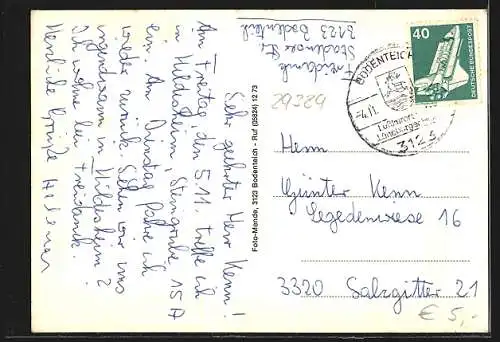 Sehr geehrter Herr Kenn!
Am Freitag, den 5.11. treffe ich
in Hildesheim, Steingrube 15A
ein. Am Dienstag fahre ich
wieder zurück. Sehen wir uns
irgendwann in Hildesheim?
Ich wohne bei Freidank.
Herzliche Grüße
Freidank
3123 Bodenteich
Foto-Mende, 3123 Bodenteich - Ruf (05824) 12 73
29384
BODENTEICH
-4.11.
Luftkurort
Lüneburger
3123
40
DEUTSCHE BUNDESPOST
Herrn
Günter Kenn
Segedenwiese 16
3320 Salzgitter 21
€ 5,-